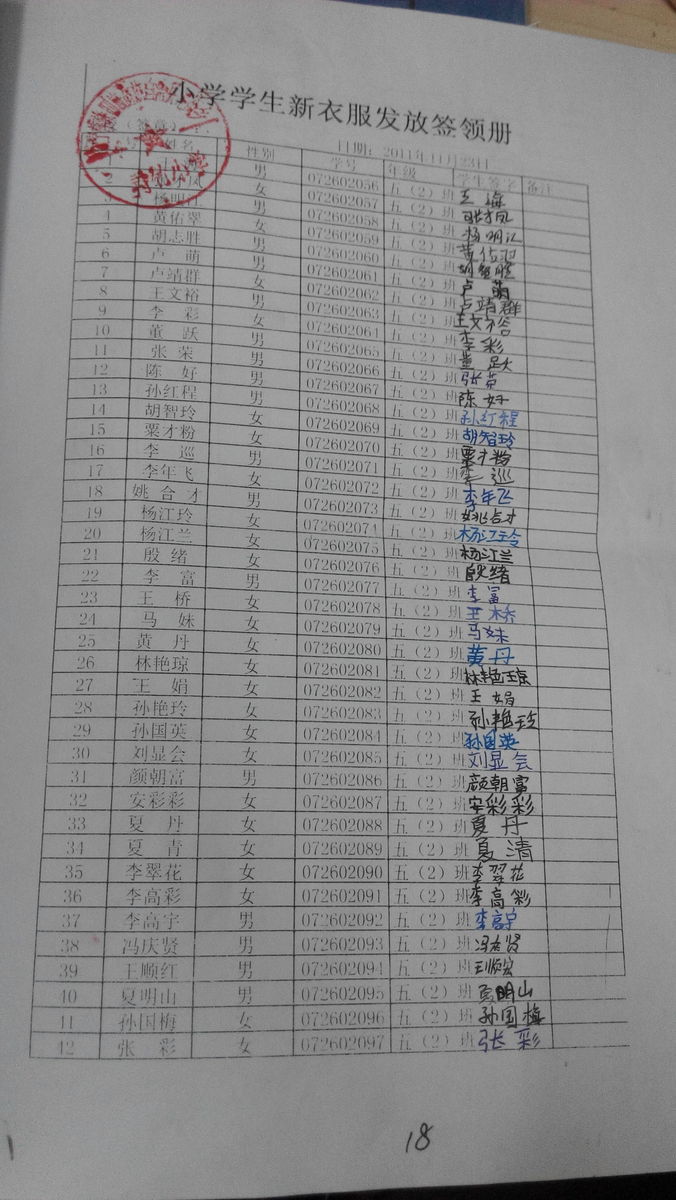 小学学生新衣服发放签领册
日期：2011年11月23日
姓名 性别 学号 年级 学生签字 备注
男 072602056 五（2）班 王海
2 女 072602057 五（2）班
3 杨明江 男 072602058 五（2）班 杨明江
4 黄佑翠 女 072602059 五（2）班
5 胡志胜 男 072602060 五（2）班
6 卢萌 男 072602061 五（2）班 卢萌
7 卢靖群 女 072602062 五（2）班 卢靖群
8 王文裕 男 072602063 五（2）班 王文裕
9 李彩 女 072602064 五（2）班 李彩
10 董跃 男 072602065 五（2）班 董跃
11 张荣 男 072602066 五（2）班 张荣
12 陈好 男 072602067 五（2）班 陈好
13 孙红程 男 072602068 五（2）班 孙红程
14 胡智玲 女 072602069 五（2）班 胡智玲
15 粟才粉 女 072602070 五（2）班 粟才粉
16 李巡 男 072602071 五（2）班 李巡
17 李年飞 女 072602072 五（2）班 李年飞
18 姚合才 男 072602073 五（2）班 姚合才
19 杨江玲 女 072602074 五（2）班 杨江玲
20 杨江兰 女 072602075 五（2）班 杨江兰
21 殷绪 女 072602076 五（2）班 殷绪
22 李富 男 072602077 五（2）班 李富
23 王桥 女 072602078 五（2）班 王桥
24 马妹 女 072602079 五（2）班 马妹
25 黄丹 女 072602080 五（2）班 黄丹
26 林艳琼 女 072602081 五（2）班 林艳琼
27 王娟 女 072602082 五（2）班 王娟
28 孙艳玲 女 072602083 五（2）班 孙艳玲
29 孙国英 女 072602084 五（2）班 孙国英
30 刘显会 女 072602085 五（2）班 刘显会
31 颜朝富 男 072602086 五（2）班 颜朝富
32 安彩彩 女 072602087 五（2）班 安彩彩
33 夏丹 女 072602088 五（2）班 夏丹
34 夏青 女 072602089 五（2）班 夏清
35 李翠花 女 072602090 五（2）班 李翠花
36 李高彩 女 072602091 五（2）班 李高彩
37 李高宇 男 072602092 五（2）班 李高宇
38 冯庆贤 男 072602093 五（2）班 冯庆贤
39 王顺红 男 072602094 五（2）班 王顺宏
40 夏明山 男 072602095 五（2）班 夏明山
41 孙国梅 女 072602096 五（2）班 孙国梅
42 张彩 女 072602097 五（2）班 张彩
18